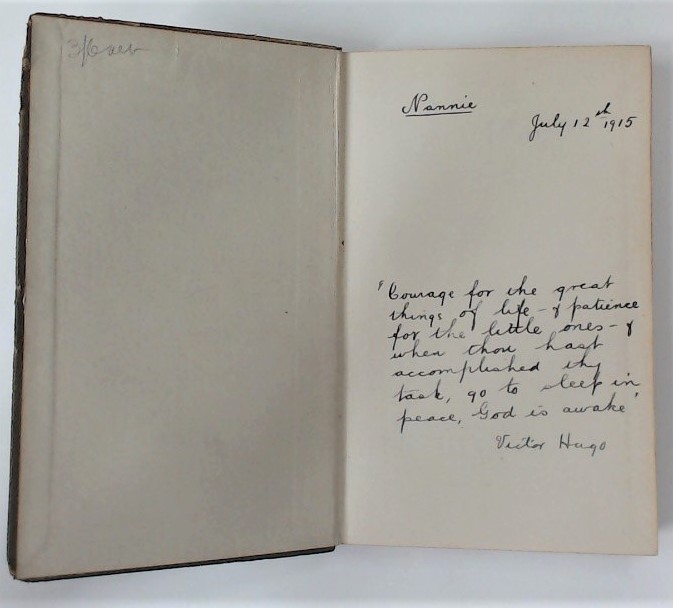 3/6
Nannie
July 12th 1915
'Courage for the great
things of life - & patience
for the little ones - &
when thou hast
accomplished thy
task, go to sleep in
peace, God is awake'
Victor Hugo